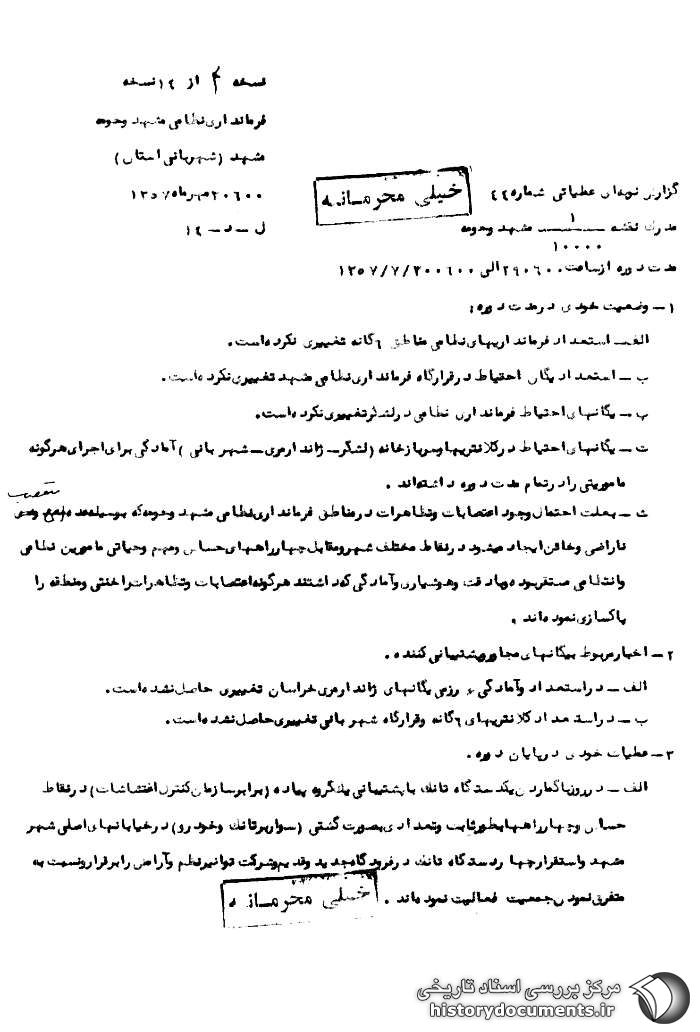 نسخه ۴ از ۱۲ نسخه
فرمانداری نظامی مشهد وحومه
مشهد (شهربانی استان)
۲۰۰۶۰۰ مهرماه ۱۳۵۷
ل – د – ۱۴
خیلی محرمانه
گزارش نوبه‌ای عملیاتی شماره ۴۴
مدرک نقشه ۱/۱۰۰۰۰ مشهد وحومه
مدت دوره از ساعت ۲۹۰۶۰۰ الی ۱۳۵۷/۷/۳۰۰۶۰۰
۱ – وضعیت خودی در مدت دوره :
الف – استعداد فرمانداریهای نظامی مناطق ۶ گانه تغییری نکرده‌است .
ب – استعداد یگان احتیاط در قرارگاه فرمانداری نظامی مشهد تغییری نکرده‌است .
پ – یگانهای احتیاط فرمانداری نظامی در لشگر تغییری نکرده‌است .
ت – یگانهای احتیاط در کلانتریها و سربازخانه (لشگر – ژاندارمری – شهربانی) آمادگی برای اجرای هرگونه
ماموریتی را در تمام مدت دوره داشته‌اند .
ث – بعلت احتمال وجود اعتصابات وتظاهرات در مناطق فرمانداری نظامی مشهد وحومه که بوسیله عده‌ای متعصب
ناراضی و خائن ایجاد میشود در نقاط مختلف شهر و مقابل چهارراههای حساس ومهم وحیاتی مامورین نظامی
وانتظامی مستقر بوده و با دقت وهوشیاری وآمادگی که داشتند هرگونه اعتصابات وتظاهرات را خنثی ومنطقه را
پاکسازی نموده‌اند .
۲ – اخبار مربوط بیگانهای مجاور و پشتیبانی کننده .
الف – در استعداد وآمادگی رزمی یگانهای ژاندارمری خراسان تغییری حاصل نشده‌است .
ب – در استعداد کلانتریهای ۶ گانه وقرارگاه شهربانی تغییری حاصل نشده‌است .
۳ – عملیات خودی در پایان دوره .
الف – در روز با گماردن یکدستگاه تانک با پشتیبانی یک گروه پیاده (برابر سازمان کنترل اغتشاشات) در نقاط
حساس وچهارراهها بطور ثابت وتعدادی بصورت گشتی (سوار بر تانک وخودرو) در خیابانهای اصلی شهر
مشهد واستقرار چهاردستگاه تانک در فرودگاه جدید وقدیم و شرکت توانیر نظم وآرامش را برقرار ونسبت به
متفرق نمودن جمعیت فعالیت نموده‌اند .
خیلی محرمانه
مرکز بررسی اسناد تاریخی
historydocuments.ir